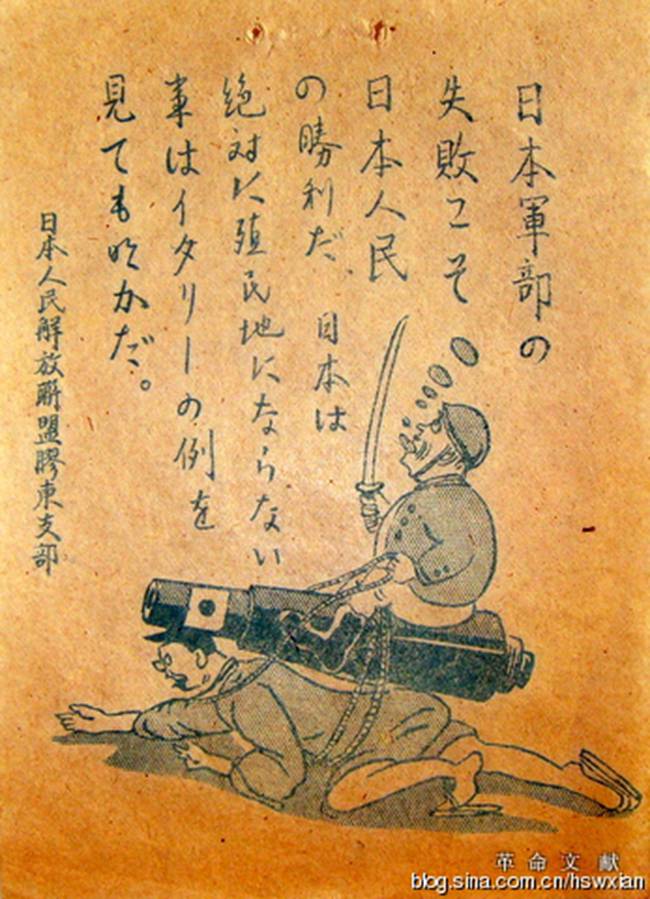 日本軍部の
失敗こそ
日本人民
の勝利だ 日本は
絶対に殖民地にならない
事はイタリーの例を
見ても明かだ。
日本人民解放聯盟膠東支部
革命文献
blog.sina.com.cn/hswxian